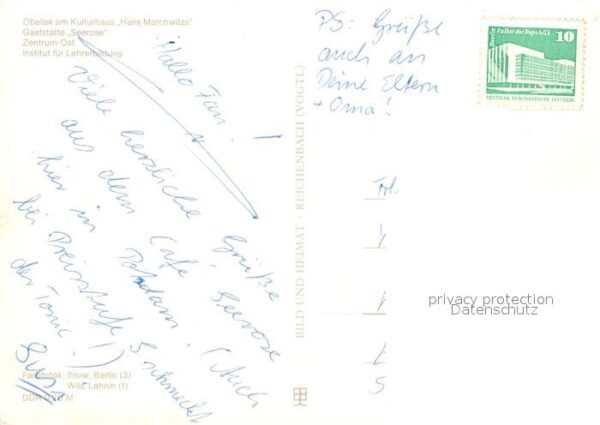 Obelisk am Kulturhaus „Hans Marchwitza"
Gaststätte „Seerose"
Zentrum-Ost
Institut für Lehrerbildung
Hallo Fan!
Viele herzliche Grüße
aus dem Café Seerose
hier in Potsdam! (Auch
bei Preisstufe S schmeckt
der Tonic!)
Farbfotos: Ihlow, Berlin (3)
Wilk, Lehnin (1)
BILD UND HEIMAT · REICHENBACH (VOGTL)
PS: Grüße
auch an
Deine Eltern
+ Oma!
Berlin Palast der Republik
10
DEUTSCHE DEMOKRATISCHE REPUBLIK
Frl.
privacy protection
Datenschutz